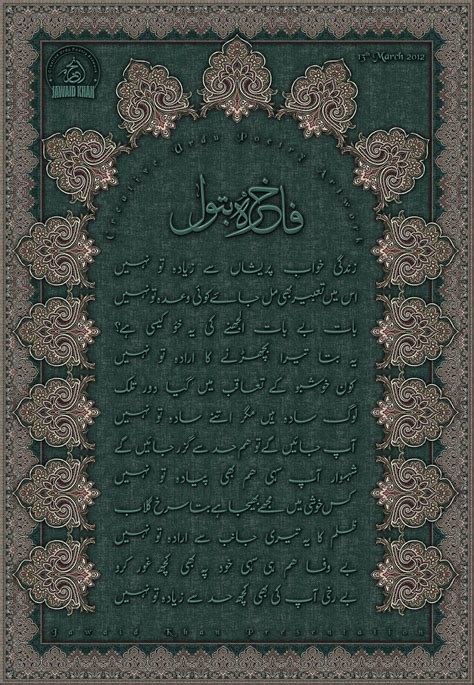 JAWAID KHAN
13th March 2012
Creative Urdu Poetry Artwork
فاخرہ بتول
زندگی خواب پریشاں سے زیادہ تو نہیں
اس میں تعبیر بھی مل جائے کوئی وعدہ تو نہیں
بات بے بات الجھنے کی یہ خو کیسی ہے؟
یہ بتا تیرا بچھڑنے کا ارادہ تو نہیں
کون خوشبو کے تعاقب میں گیا دور تلک
لوگ سادہ ہیں مگر اتنے سادہ تو نہیں
آپ جائیں گے تو ہم حد سے گزر جائیں گے
شہسوار آپ سہی ہم بھی پیادہ تو نہیں
کس خوشی میں مجھے بھیجا ہے بتا سرخ گلاب
ظلم کا یہ تیری جانب سے ارادہ تو نہیں
بے وفا ہم ہی سہی خود پہ کبھی کچھ غور کرو
بے رخی آپ کی بھی کچھ حد سے زیادہ تو نہیں
Jawaid Khan Presentation